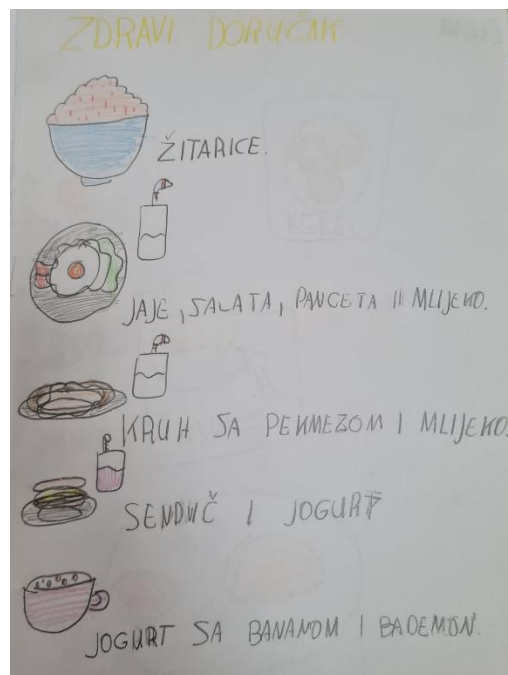 ZDRAVI DORUČAK
ŽITARICE.
JAJE, SALATA, PANCETA I MLIJEKO.
KRUH SA PEKMEZOM I MLIJEKO.
SENDVIČ I JOGURT
JOGURT SA BANANOM I BADEMOM.